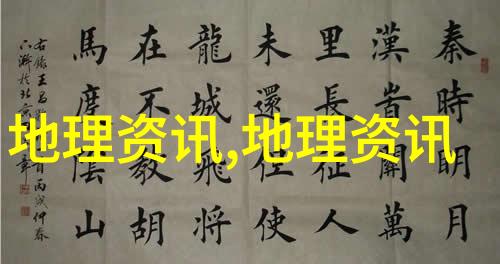 秦時明月
漢旹關萬
里長征人
未還但使
龍城飛將
在不教胡
馬度陰山
右錄王昌 丙戌仲春
於北京
地理资讯,地理资讯